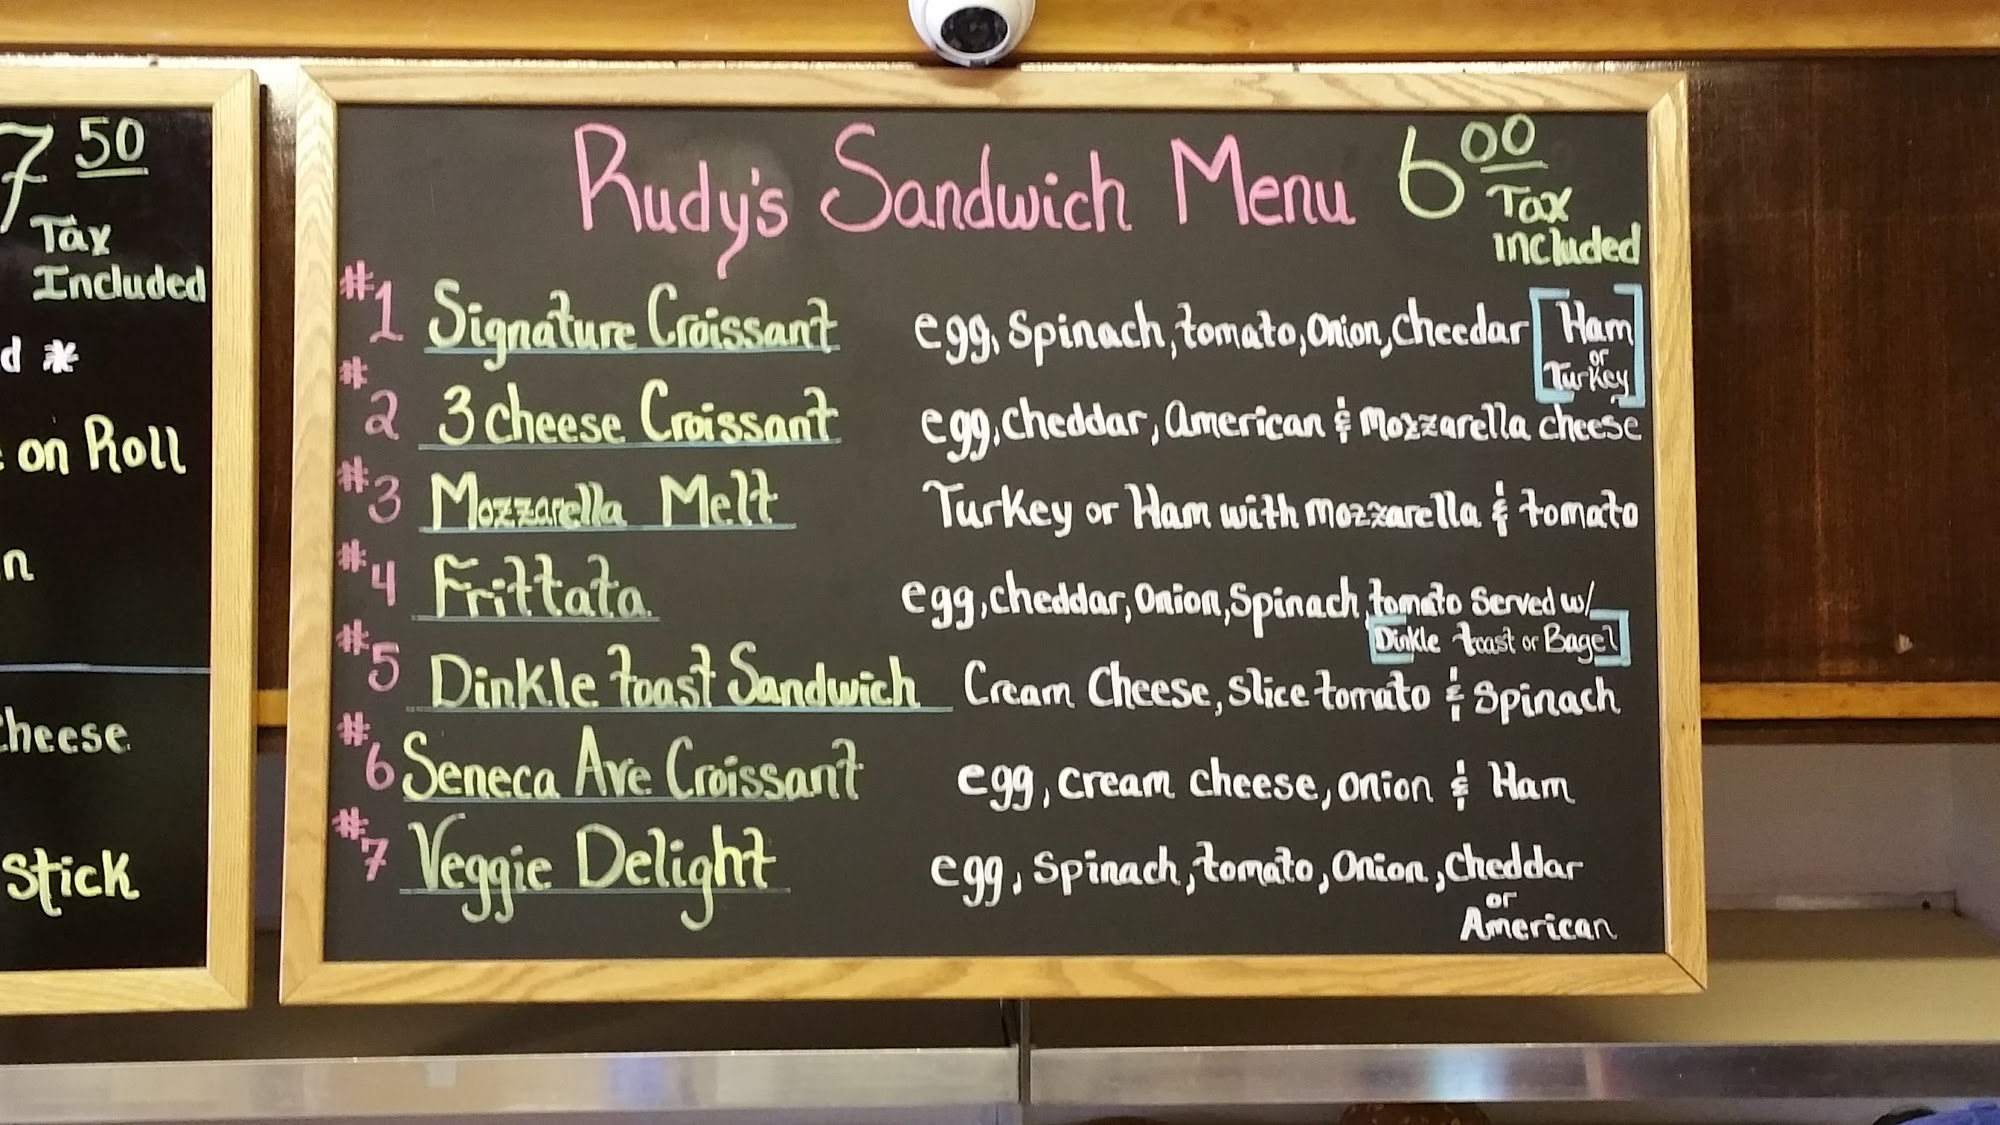 7 50
Tax
Included
d *
on Roll
n
cheese
Stick
Rudy's Sandwich Menu 6 00
Tax
included
#1 Signature Croissant egg, Spinach, tomato, Onion, Cheedar [Ham
or
Turkey]
#2 3 cheese Croissant egg, cheddar, American & mozzarella cheese
#3 Mozzarella Melt Turkey or Ham with mozzarella & tomato
#4 Frittata egg, cheddar, Onion, Spinach, tomato Served w/
[Dinkle toast or Bagel]
#5 Dinkle toast Sandwich Cream Cheese, slice tomato & spinach
#6 Seneca Ave Croissant egg, cream cheese, onion & Ham
#7 Veggie Delight egg, Spinach, tomato, Onion, cheddar
or
American